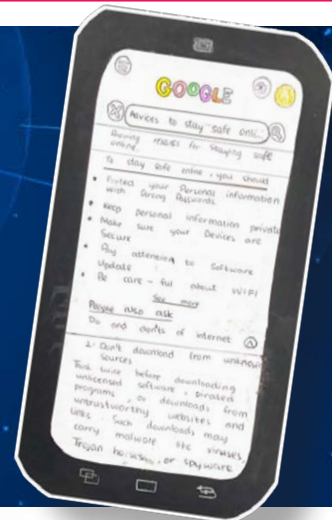 GOOGLE
Advices to stay safe onli..
Showing results for Staying safe
online
To stay safe online, you should
• Protect your Personal information
with Strong Passwords.
• Keep personal information private
• Make sure your Devices are
Secure
• Pay attention to Software
Update
• Be care-ful about WIFI
See more
People also ask
Do and don'ts of internet
2. Don't download from unknown
sources
Think twice before downloading
unlicensed software, pirated
programs, or downloads from
untrustworthy websites and
links. Such downloads may
carry malware like viruses,
Trojan horses, or spyware